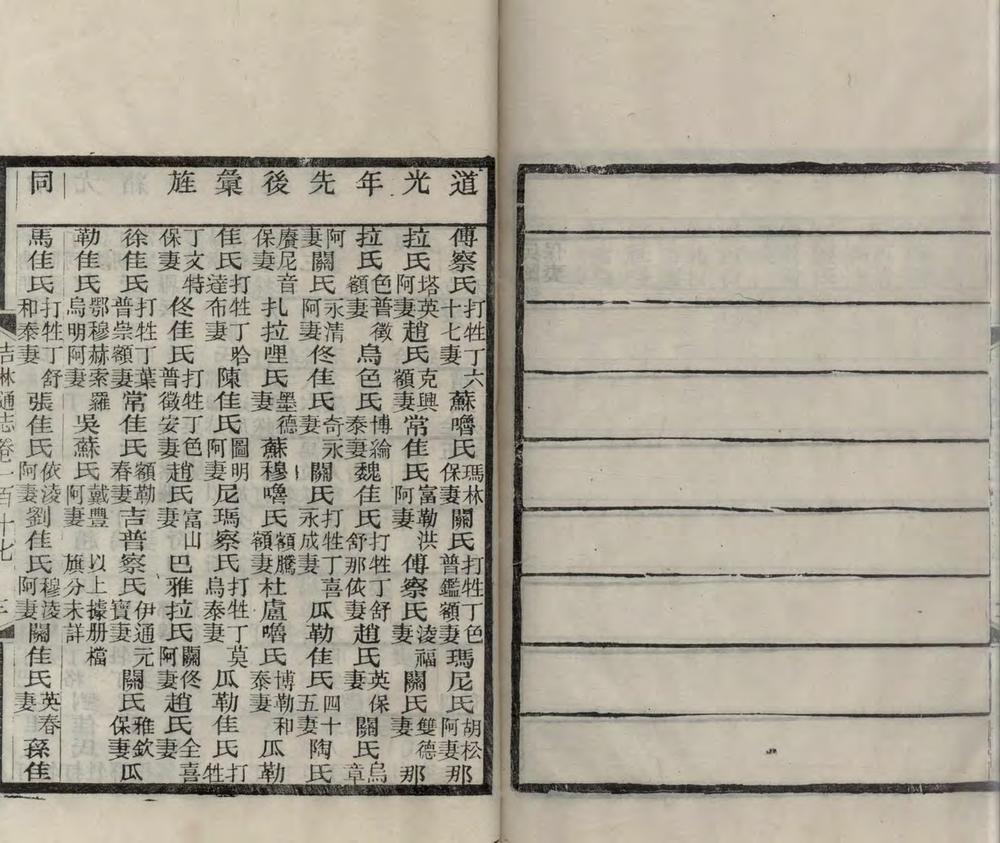 道光年先後彙旌
傅察氏打牲丁六十七妻蘇嚕氏瑪林保妻關氏打牲丁色普鑑額妻瑪尼氏胡松阿妻那
拉氏塔英阿妻趙氏克興額妻常佳氏富勒洪阿妻傅察氏淩福妻關氏雙德妻那
拉氏色普徵額妻烏色氏博綸泰妻魏佳氏打牲丁舒舒那依妻趙氏英保妻關氏烏章
阿妻關氏永清阿妻佟佳氏奇永妻關氏打牲丁喜永成妻瓜勒佳氏四十五妻陶氏
賡尼音保妻扎拉哩氏墨德妻蘇穆嚕氏額騰額妻杜盧嚕氏博勒和泰妻瓜勒
佳氏打牲丁哈達布妻陳佳氏圖明阿妻尼瑪察氏打牲丁莫烏泰妻瓜勒佳氏打牲
丁文特保妻佟佳氏打牲丁色普徵安妻趙氏富山妻巴雅拉氏關佟阿妻趙氏全喜妻
徐佳氏打牲丁葉普崇額妻常佳氏額勒春妻吉普察氏伊通元寶妻關氏雅欽保妻瓜
勒佳氏鄂穆赫索羅烏明阿妻吳蘇氏戴豐阿妻以上據册檔旗分未詳
同
馬佳氏打牲丁舒和泰妻張佳氏依淩阿妻劉佳氏穆淩阿妻關佳氏英春妻孫佳
吉林通志卷一百十七 三